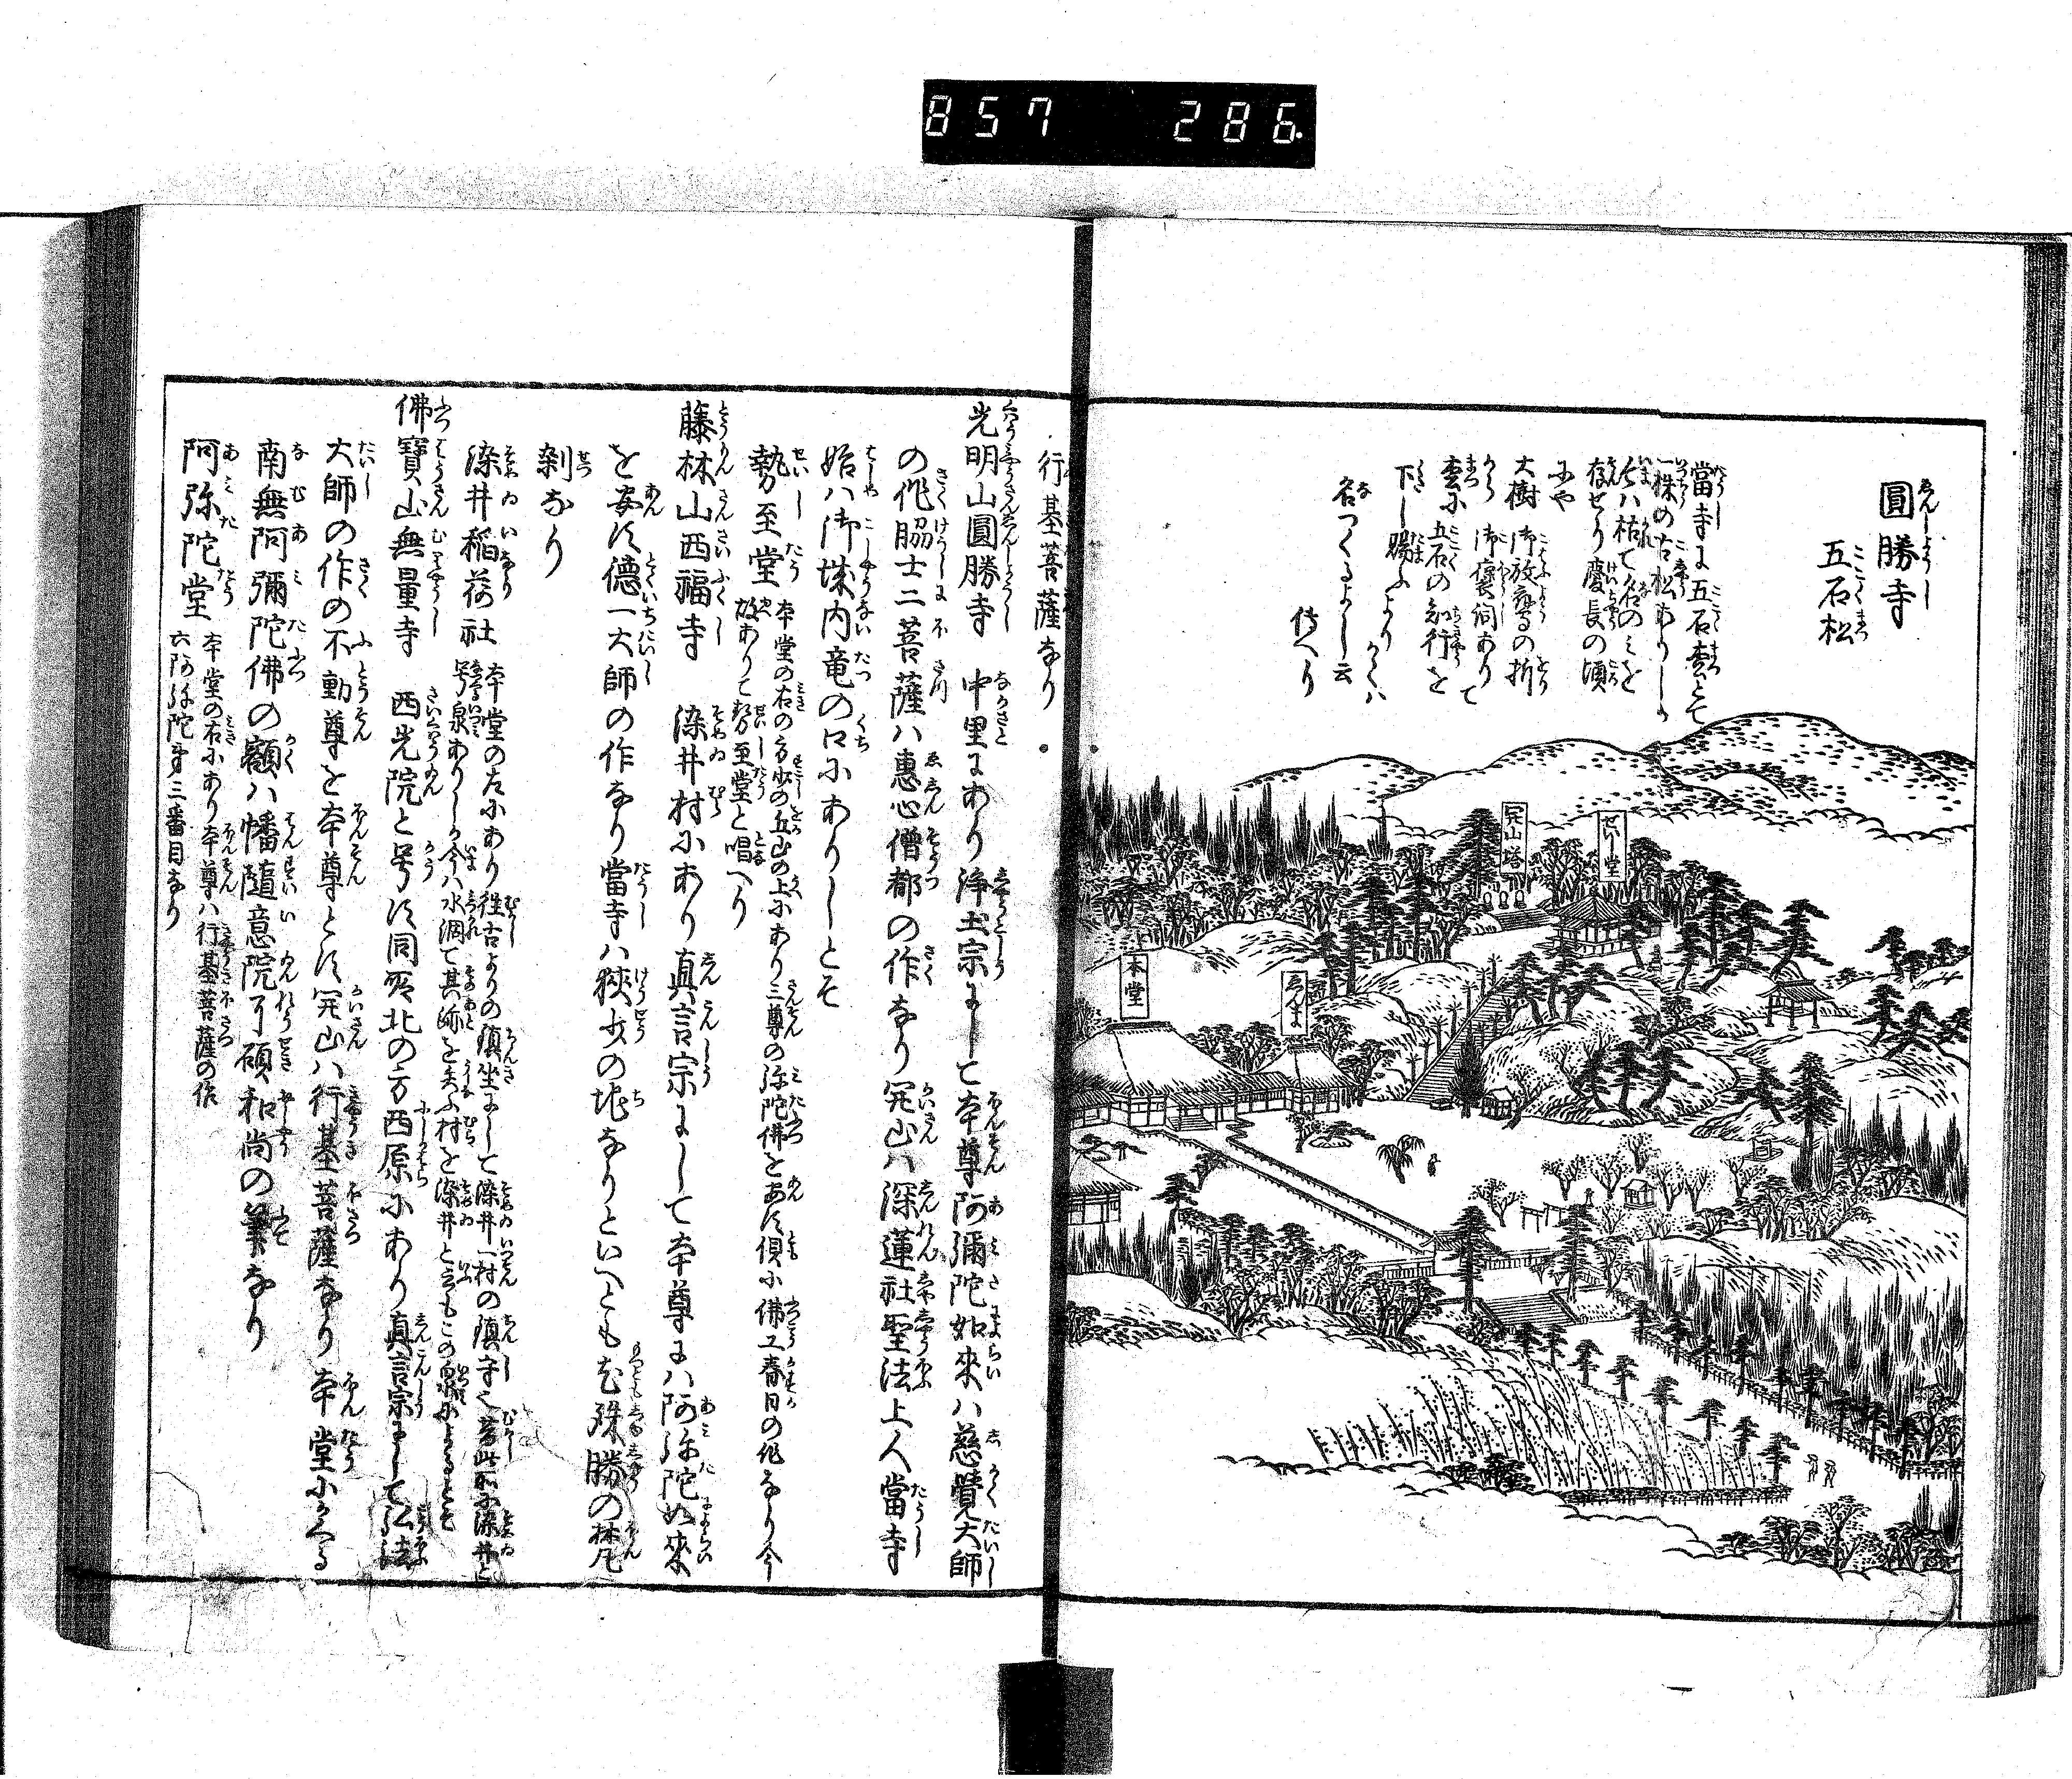 857 286
圓勝寺
五石松
當寺に五石松とて
一株の古松ありしか
今ハ枯て名のミを
存せり慶長の頃
にや
大樹 御放鷹の折
から 御褒詞ありて
松に五石の知行を
下し賜ふよりかくハ
名つくるよし云
伝へり
せいし堂
開山塔
ゑんま
本堂
行基菩薩なり
光明山圓勝寺 中里にあり浄土宗にして本尊阿彌陀如來ハ慈覺大師
の作脇士二菩薩ハ惠心僧都の作なり開山ハ深蓮社聖法上人當寺
始ハ御城内竜の口にありしとそ
勢至堂 本堂の右の方少の丘山の上にあり三尊の弥陀佛を安す倶に佛工春日の作なり今
故ありて勢至堂と唱へり
藤林山西福寺 染井村にあり真言宗にして本尊にハ阿弥陀如來
を安す德一大師の作なり當寺ハ狹少の地なりといへとも尤殊勝の梵
刹なり
染井稲荷社 本堂の左にあり徃古よりの鎮坐にして染井一村の鎮守也昔此所に染井と
号泉ありしか今ハ水涸て其跡を失ふ村を染井と云もこの泉によるとそ
佛寶山無量寺 西光院と号す同所北の方西原にあり真言宗にして弘法
大師の作の不動尊を本尊とす開山ハ行基菩薩なり本堂にかくる
南無阿彌陀佛の額ハ幡隨意院了碩和尚の筆なり
阿弥陀堂 本堂の右にあり本尊ハ行基菩薩の作
六阿弥陀第三番目なり